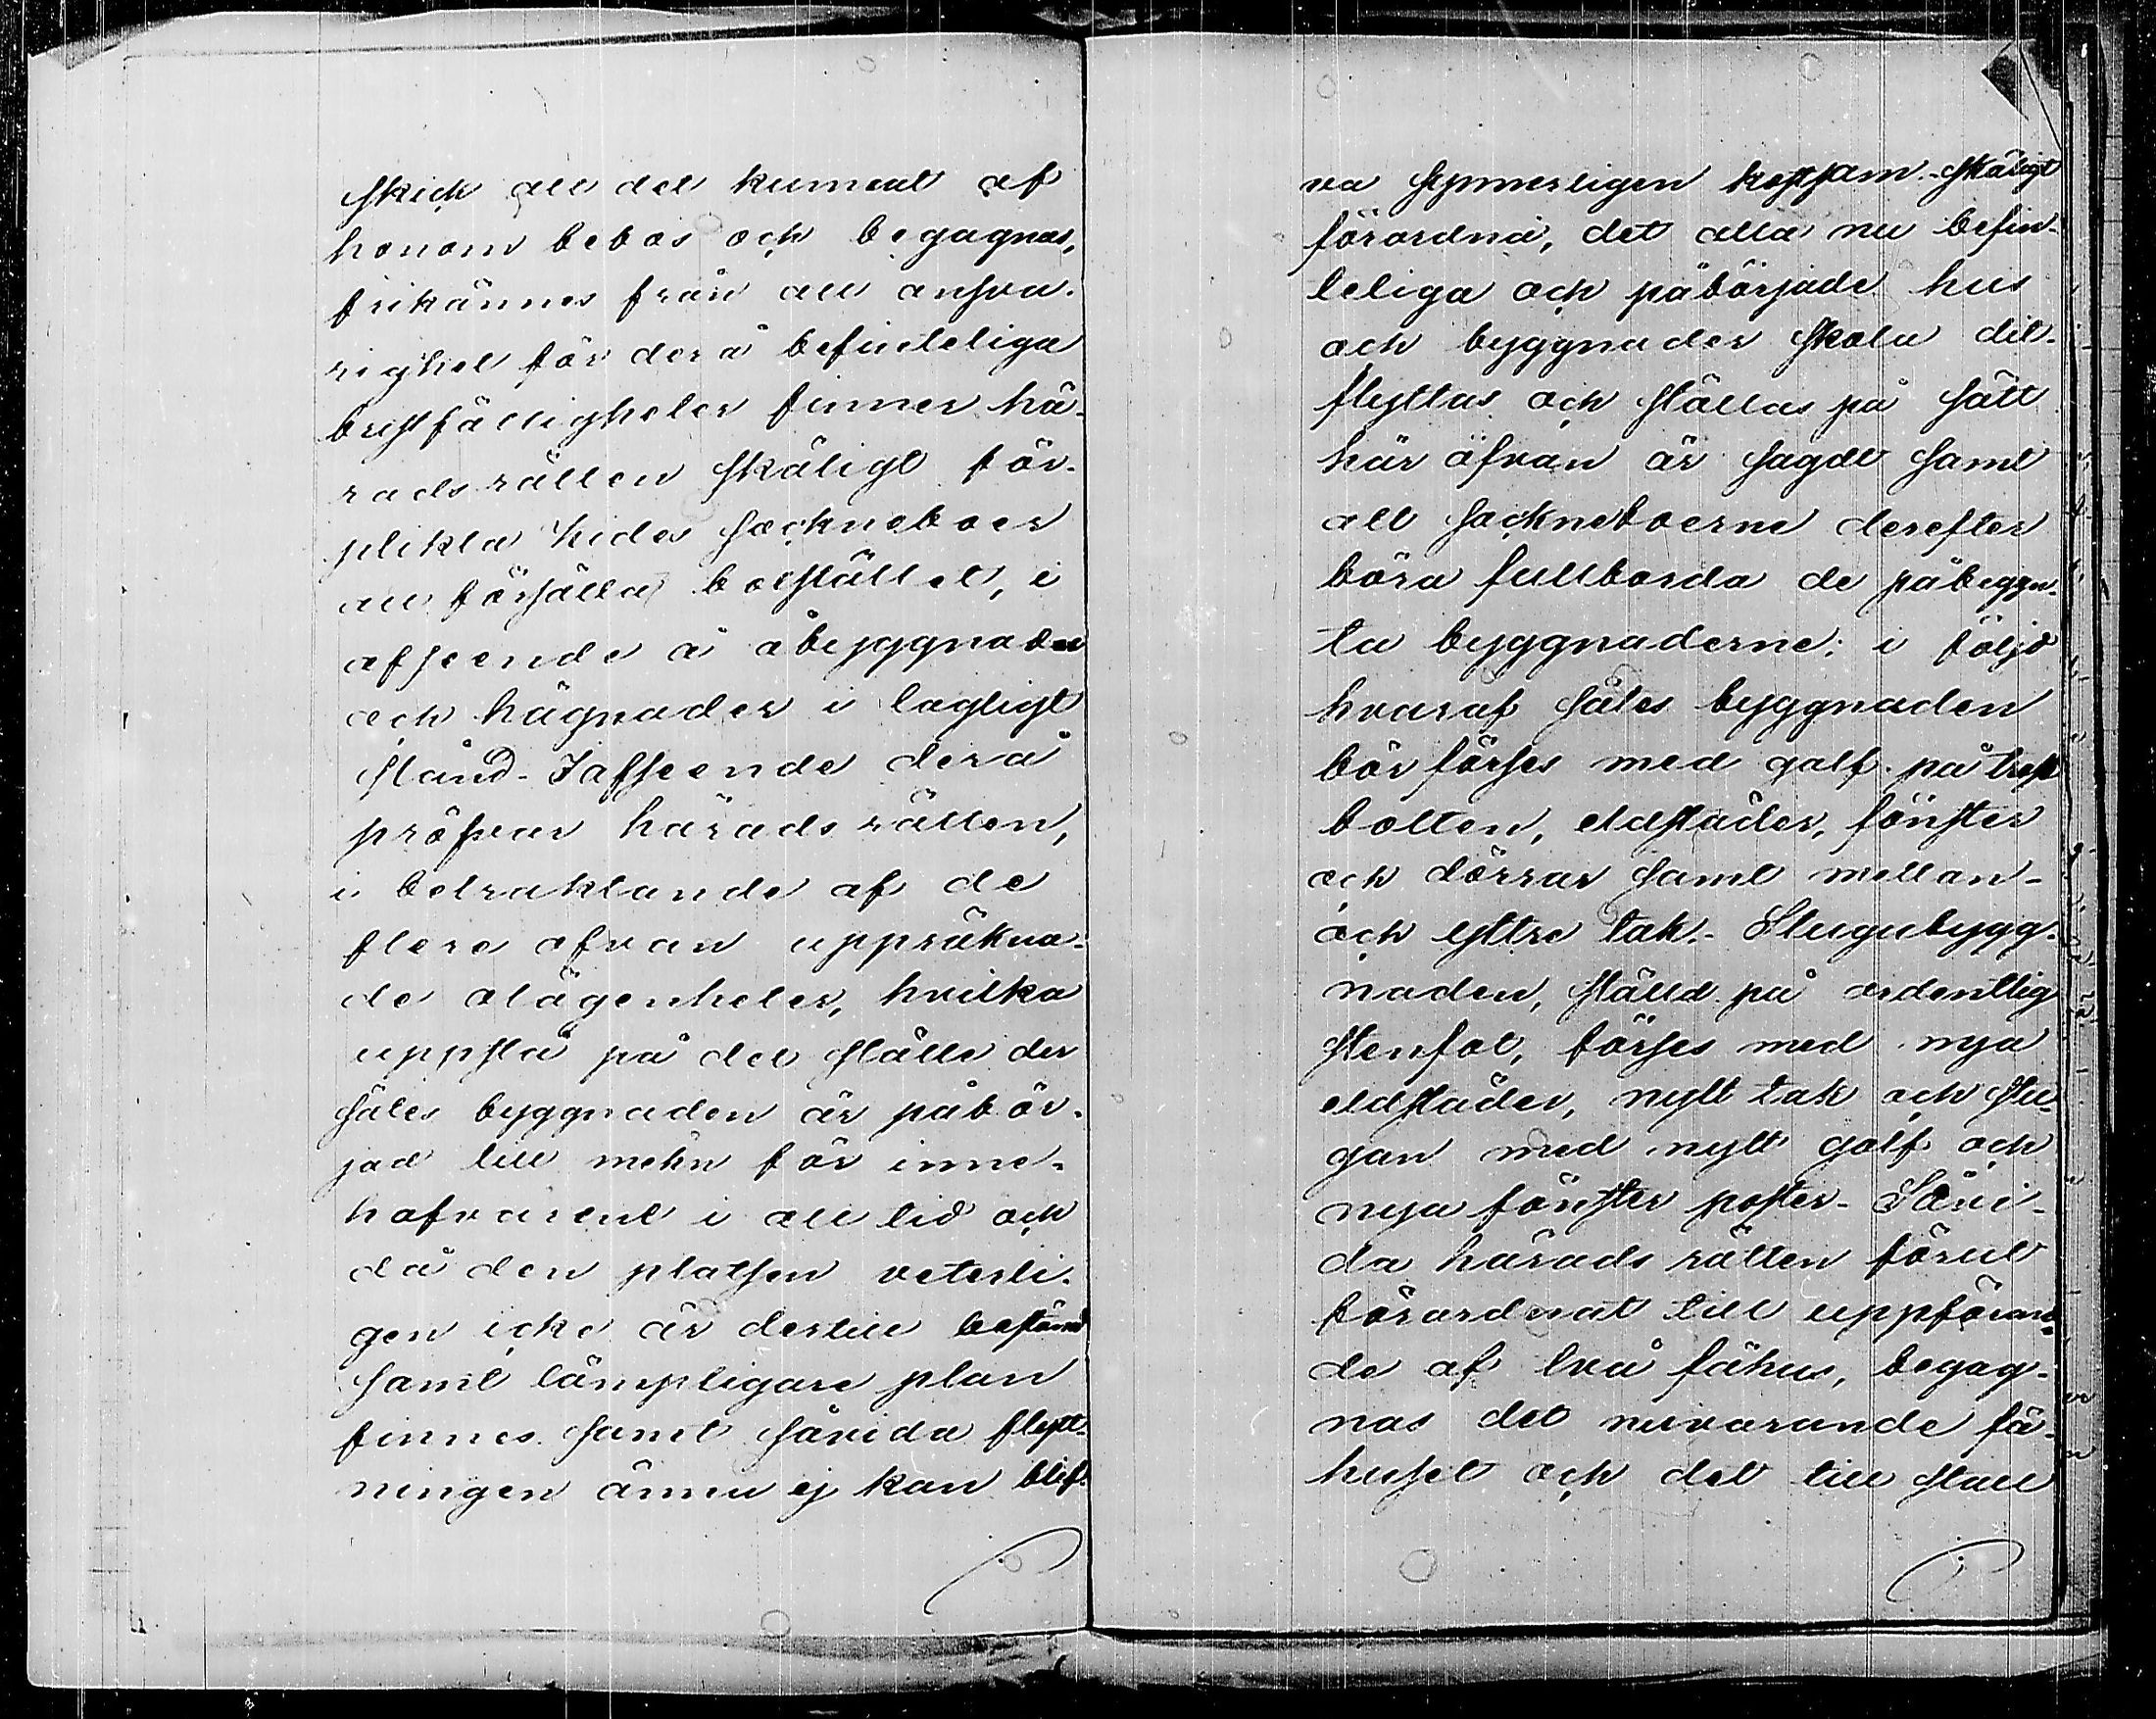 skick att det kunnat af
honom bebos och begagnas,
frikännes från all ansva-
righet för derå befinteliga
bristfälligheter finner hä-
radsrätten skäligt för-
plikta Kides sockneboer
att försätta bolstället, i
afseende å åbyggnader
och hägnader i lagligt
stånd. I afseende derå
pröfvar häradsrätten,
i betraktande af de
flere ofvan uppräkna-
de olägenheter, hvilka
uppstå på det ställe der
sätes byggnaden är påbör-
jad till mehn för inne-
hafvarent i all tid och
då den platsen veterli-
gen icke är dertill bestämd
samt lämpligare plan
finnes samt såvida flytt-
ningen ännu ej kan blif-
va synnerligen kostsam. Skäligt
förordna, det alla nu befin-
teliga och påbörjade hus
och byggnader skola dit-
flyttas och ställas på sätt
här ofvan är sagdt samt
att sockneboerne derefter
böra fullborda de påbegyn-
ta byggnaderne: i följd
hvaraf sätes byggnaden
bör förses med golf på tross
botten, eldstäder, fönster
och dörrar samt mellan-
och yttre tak. Stugubygg-
naden, ställd på ordentlig
stenfot, förses med nya
eldstäder, nytt tak och stu-
gan med nytt golf och
nya fönster poster. Såvi-
da härads rätten förut
förordnat till uppföran-
de af två fähus, begag-
nas det nuvarande fä-
huset och det till stall